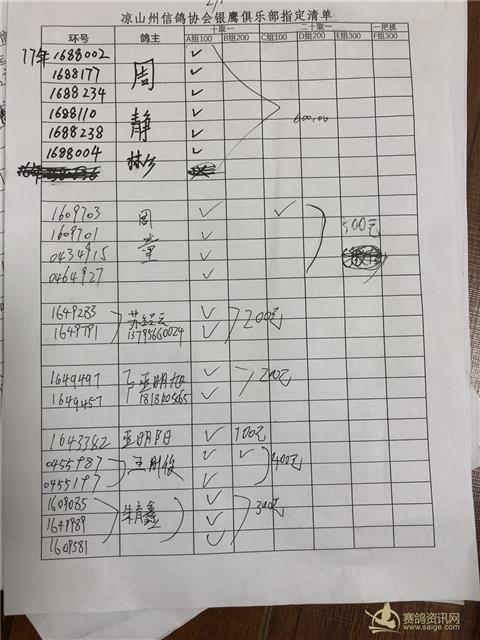 凉山州信鸽协会银鹰俱乐部指定清单
环号 鸽主 十取一 二十取一 一把抓
A组100 B组200 C组100 D组200 E组300 F组300
17年1688002 ✓
1688177 周 ✓
1688234 ✓
1688110 静 ✓
1688238 ✓
1688004 ✓
600.00
1609703 周 ✓ ✓
1609701 童 ✓ 500元
0434915 ✓
0464927 ✓
1649283 ✓ 200元
1649791 13795660024 ✓
1649497 ✓ 200元
1649457 ✓
1643382 亚明阳 ✓ 100元
0455987 王刚俊 ✓ ✓ 400元
0455197 ✓
1609085 朱育鑫 ✓ 300元
1649989 ✓
1609581 ✓
赛鸽资讯网
www.saige.com